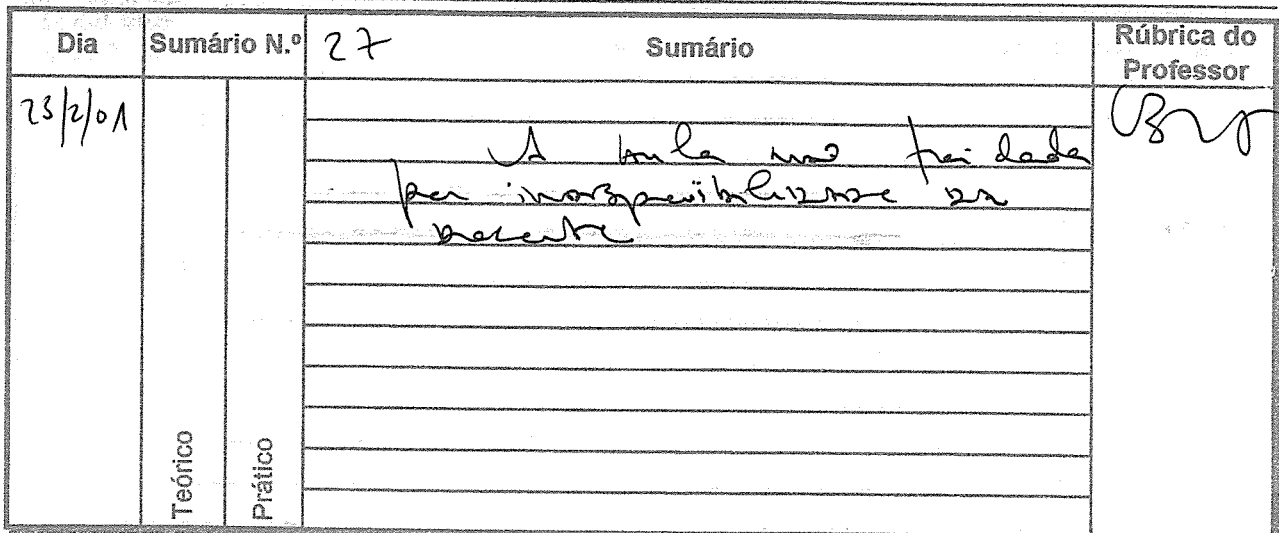 Dia Sumário N.º 27 Sumário Rúbrica do Professor
23/2/01
A aula não foi dada
por indisponibilidade da
docente
Teórico
Prático